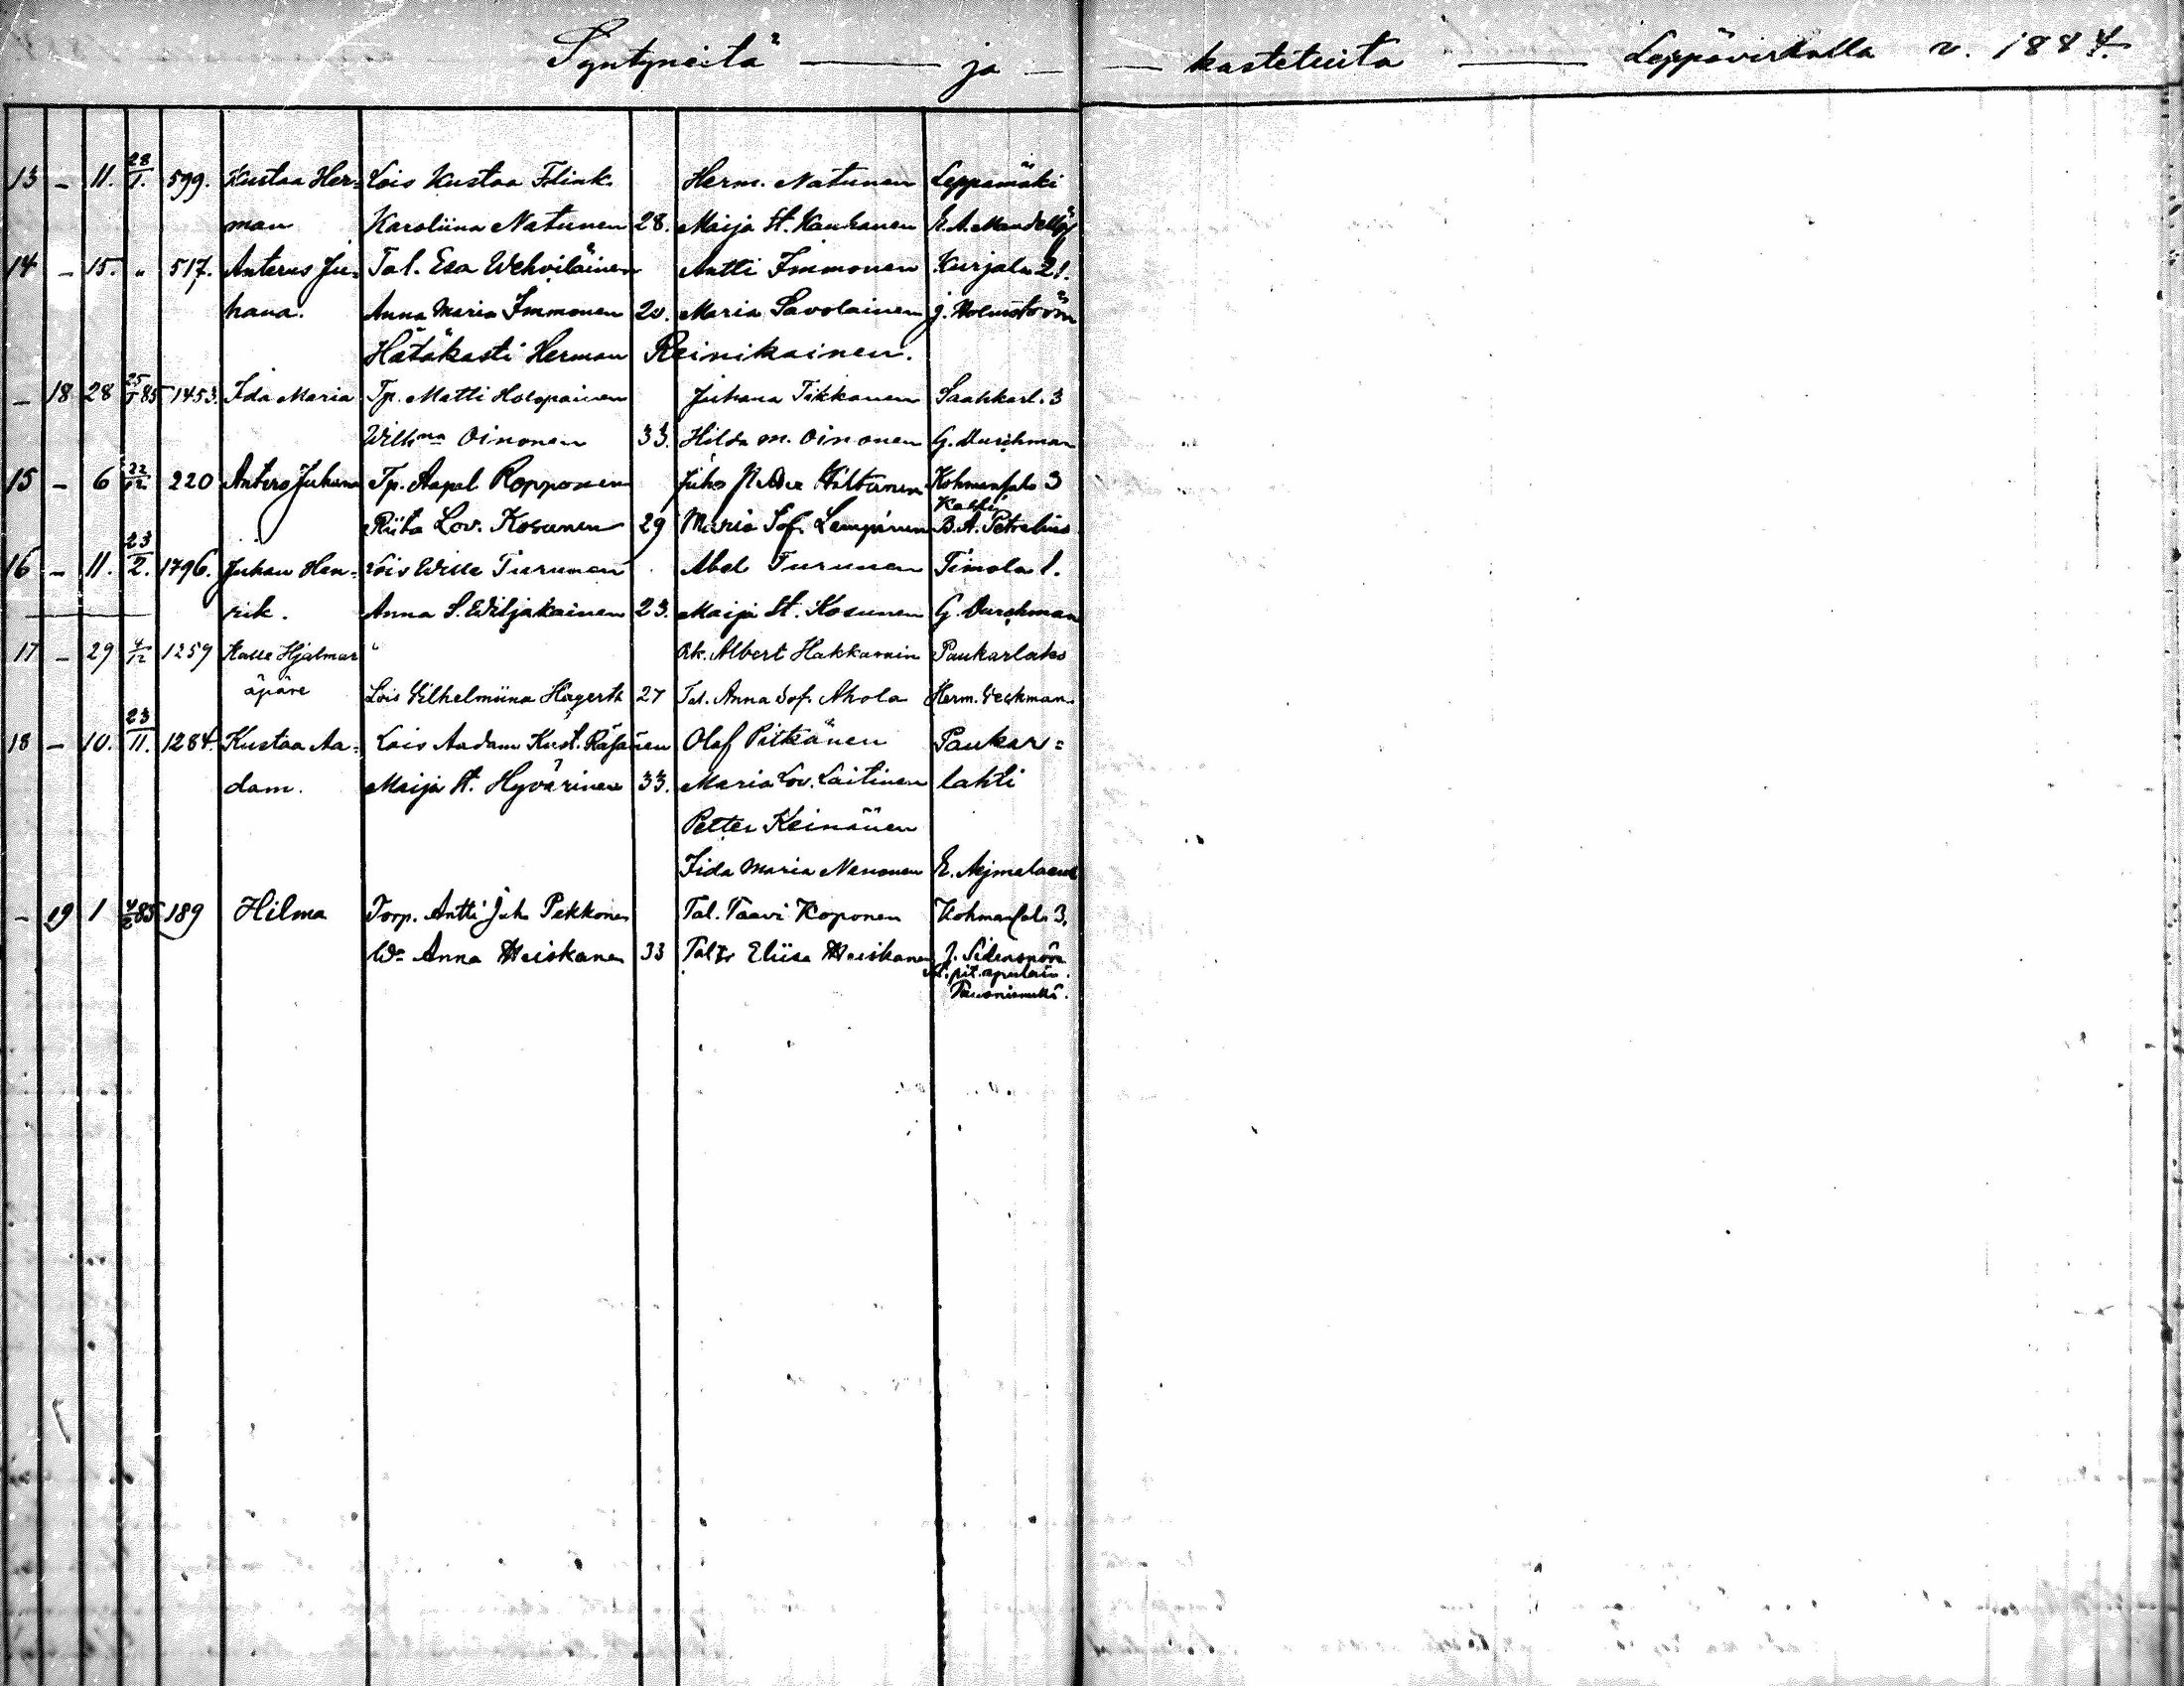 Syntyneitä — ja — kastetuita — Leppävirralla v. 1884.
13 - 11. 28/1. 599. Kustaa Her= Lois Kustaa Flink. Herm. Natunen Leppämäki
man Karoliina Natunen 28. Maija St. Kauhanen E. A. Mandellöf
14 - 15. " 517. Anterus Ju= Tal. Esa Wehviläinen Antti Immonen Kurjala 21.
hana. Anna Maria Immonen 20. Maria Savolainen J. Holmström
Hätäkasti Herman Reinikainen.
- 18 28 25/1 85 1453. Ida Maria Tp. Matti Holopainen Juhana Tikkanen Saahkarl. 3
Willm̲a̲ Oinonen 33. Hilda M. Oinonen G. Durchman
15 - 6 22/12 220 Antero Juhana Tp. Aapel Ropponen Juho Hiltunen Kohmansalo 3
Riita Lov. Kosunen 29 Maria Sof. Lempinen B. A. Petrelius
16 - 11. 23/2. 1796. Juhan Hen= Lois Wille Turunen Abel Turunen Timola 1.
rik. Anna S. Wiljakainen 23. Maija St. Kosunen G. Durchman
17 - 29 4/12 1259 Kalle Hjalmar Rk. Albert Hakkarain Paukarlaks
äpäre Lois Vilhelmiina Hagerth 27 Tal. Anna Sof. Ahola Herm. Weckman
18 - 10. 23/11. 1284. Kustaa Aa= Lois Aadam Kust. Räsänen Olof Pitkänen Paukar=
dam. Maija St. Hyvärinen 33. Maria Lov. Laitinen lahti
Petter Keinänen
Iida Maria Nenonen E. Aejmelaeus
- 29 1 4/2 85 189 Hilma Torp. Antti Juh. Pekkonen Tal. Taavi Koponen Kohmansalo 3.
W= Anna Heiskanen 33 Tal tr Eliisa Heiskanen J. Sidensnöre